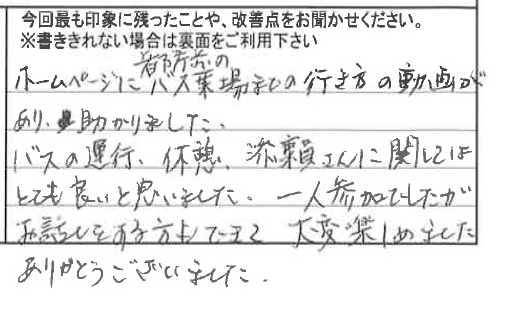 今回最も印象に残ったことや、改善点をお聞かせください。
※書ききれない場合は裏面をご利用下さい
都庁前の
ホームページにバス乗場までの行き方の動画が
あり、助かりました。
バスの運行、休憩、添乗さんに関しては
とても良いと思いました。一人参加でしたが
お話しをする方もできて 大変楽しめました
ありがとうございました。